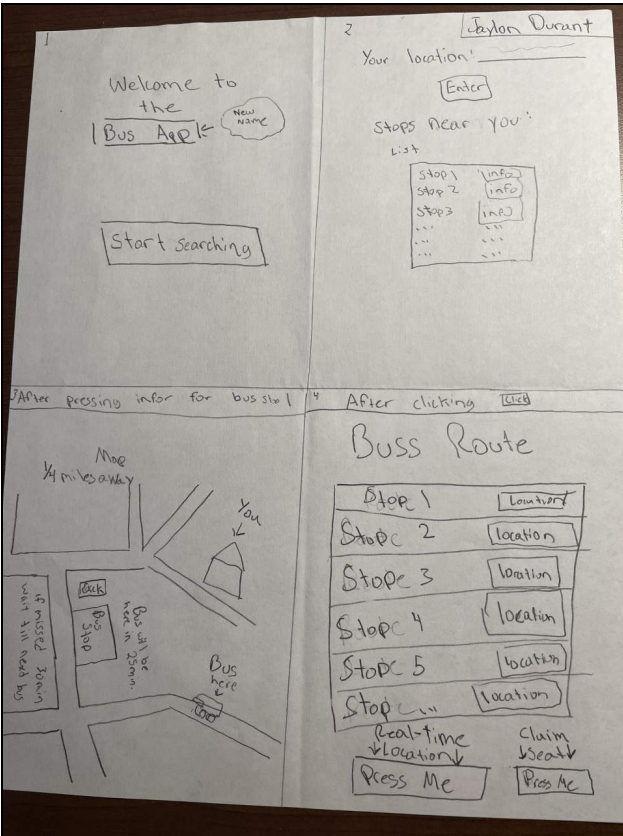 1
Welcome to
the
Bus App
New
Name
Start searching
2
Jaylon Durant
Your location:
Enter
Stops near you:
List
Stop 1 info
Stop 2 info
Stop 3 info
... ...
... ...
... ...
3 After pressing infor for bus sto 1
Map
1/4 miles away
You
Click
Bus
Stop
Bus will be
here in 25min.
if missed 30min
wait till next bus
Bus
here
4 After clicking Click
Buss Route
Stop 1 Location
Stop 2 location
Stop 3 location
Stop 4 location
Stop 5 location
Stop ... location
Real-time
Location
Press Me
Claim
Seat
Press Me